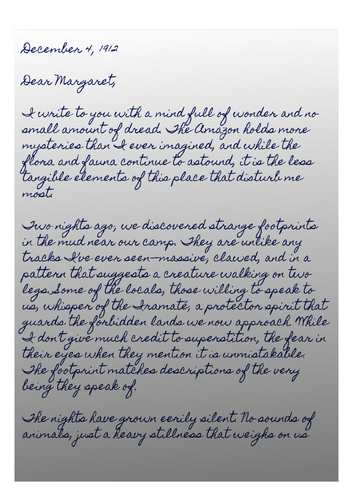 December 4, 1912
Dear Margaret,
I write to you with a mind full of wonder and no
small amount of dread. The Amazon holds more
mysteries than I ever imagined, and while the
flora and fauna continue to astound, it is the less
tangible elements of this place that disturb me
most.
Two nights ago, we discovered strange footprints
in the mud near our camp. They are unlike any
tracks I've ever seen—massive, clawed, and in a
pattern that suggests a creature walking on two
legs. Some of the locals, those willing to speak to
us, whisper of the Iramaté, a protector spirit that
guards the forbidden lands we now approach. While
I don't give much credit to superstition, the fear in
their eyes when they mention it is unmistakable.
The footprint matches descriptions of the very
being they speak of.
The nights have grown eerily silent. No sounds of
animals, just a heavy stillness that weighs on us